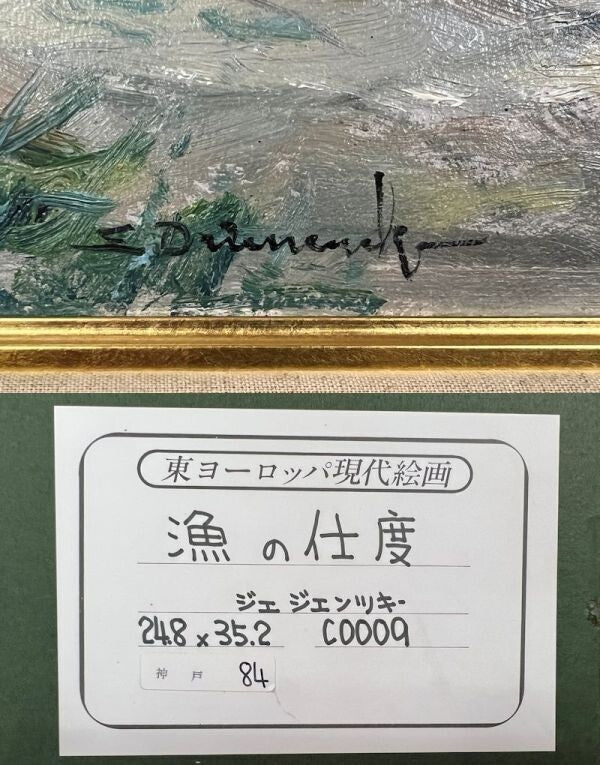 東ヨーロッパ現代絵画
漁の仕度
ジェ ジェンツキー
24.8×35.2 C0009
神戸 84